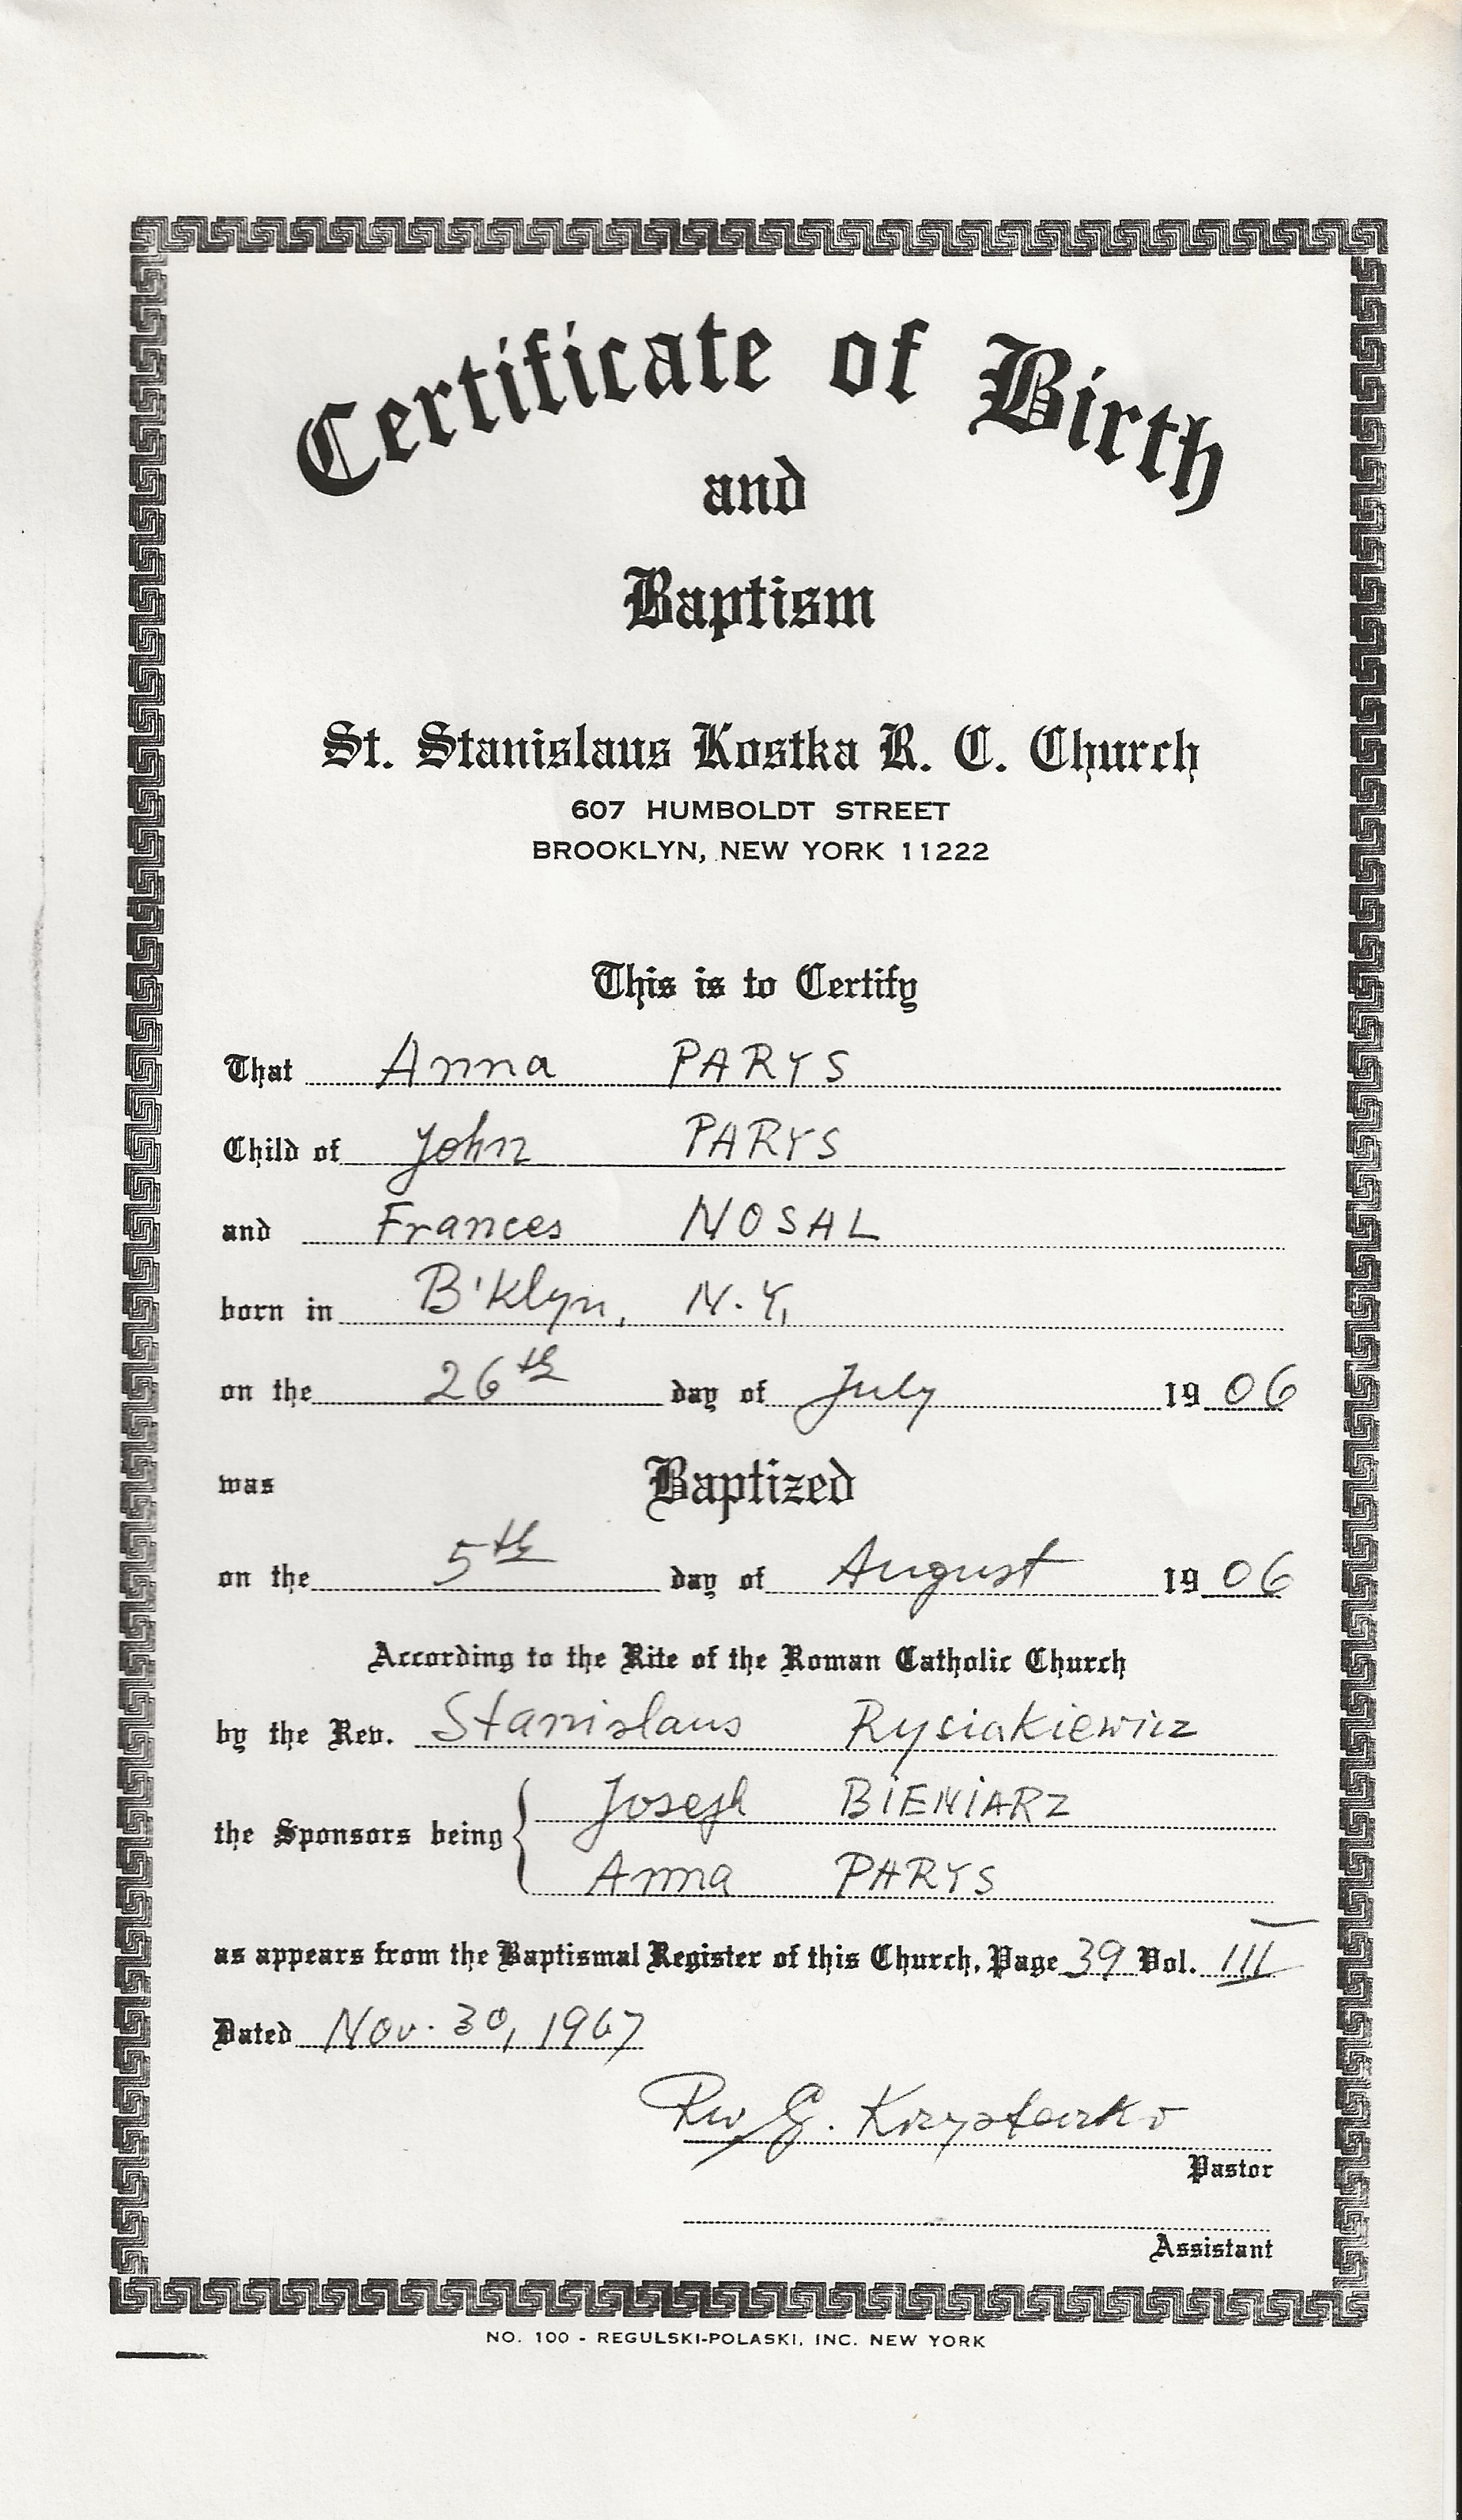 Certificate of Birth
and
Baptism
St. Stanislaus Kostka R. C. Church
607 HUMBOLDT STREET
BROOKLYN, NEW YORK 11222
This is to Certify
That Anna PARYS
Child of John PARYS
and Frances NOSAL
born in B'Klyn, N.Y.
on the 26th day of July 1906
was Baptized
on the 5th day of August 1906
According to the Rite of the Roman Catholic Church
by the Rev. Stanislaus Rysiakiewicz
the Sponsors being Joseph BIENIARZ
Anna PARYS
as appears from the Baptismal Register of this Church, Page 39 Vol. III
Dated Nov. 30, 1967
Rev G.
Pastor
Assistant
NO. 100 - REGULSKI-POLASKI, INC. NEW YORK